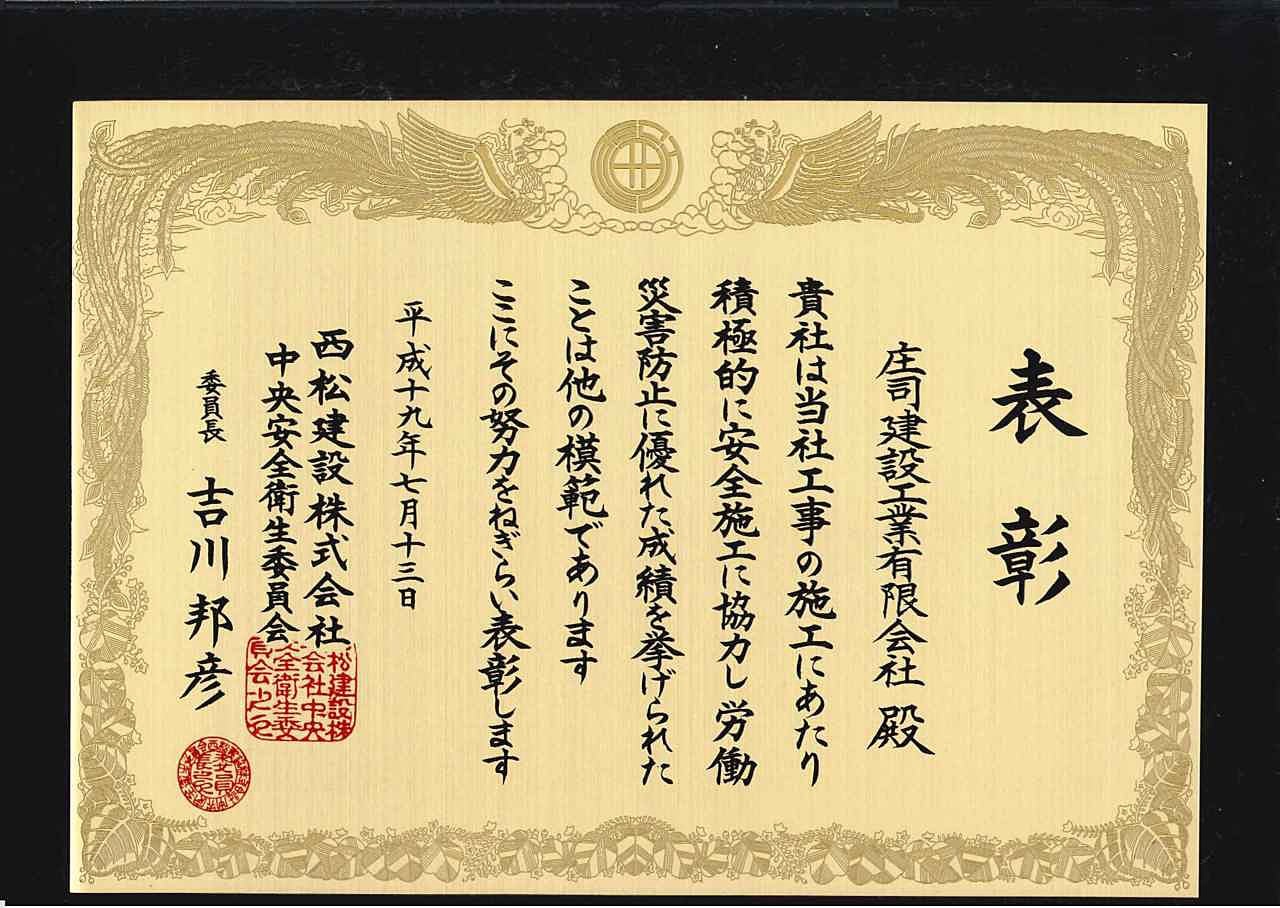 表彰
庄司建設工業有限会社 殿
貴社は当社工事の施工にあたり
積極的に安全施工に協力し労働
災害防止に優れた成績を挙げられた
ことは他の模範であります
ここにその努力をねぎらい表彰します
平成十九年七月十三日
西松建設株式会社
中央安全衛生委員会
委員長 吉川邦彦